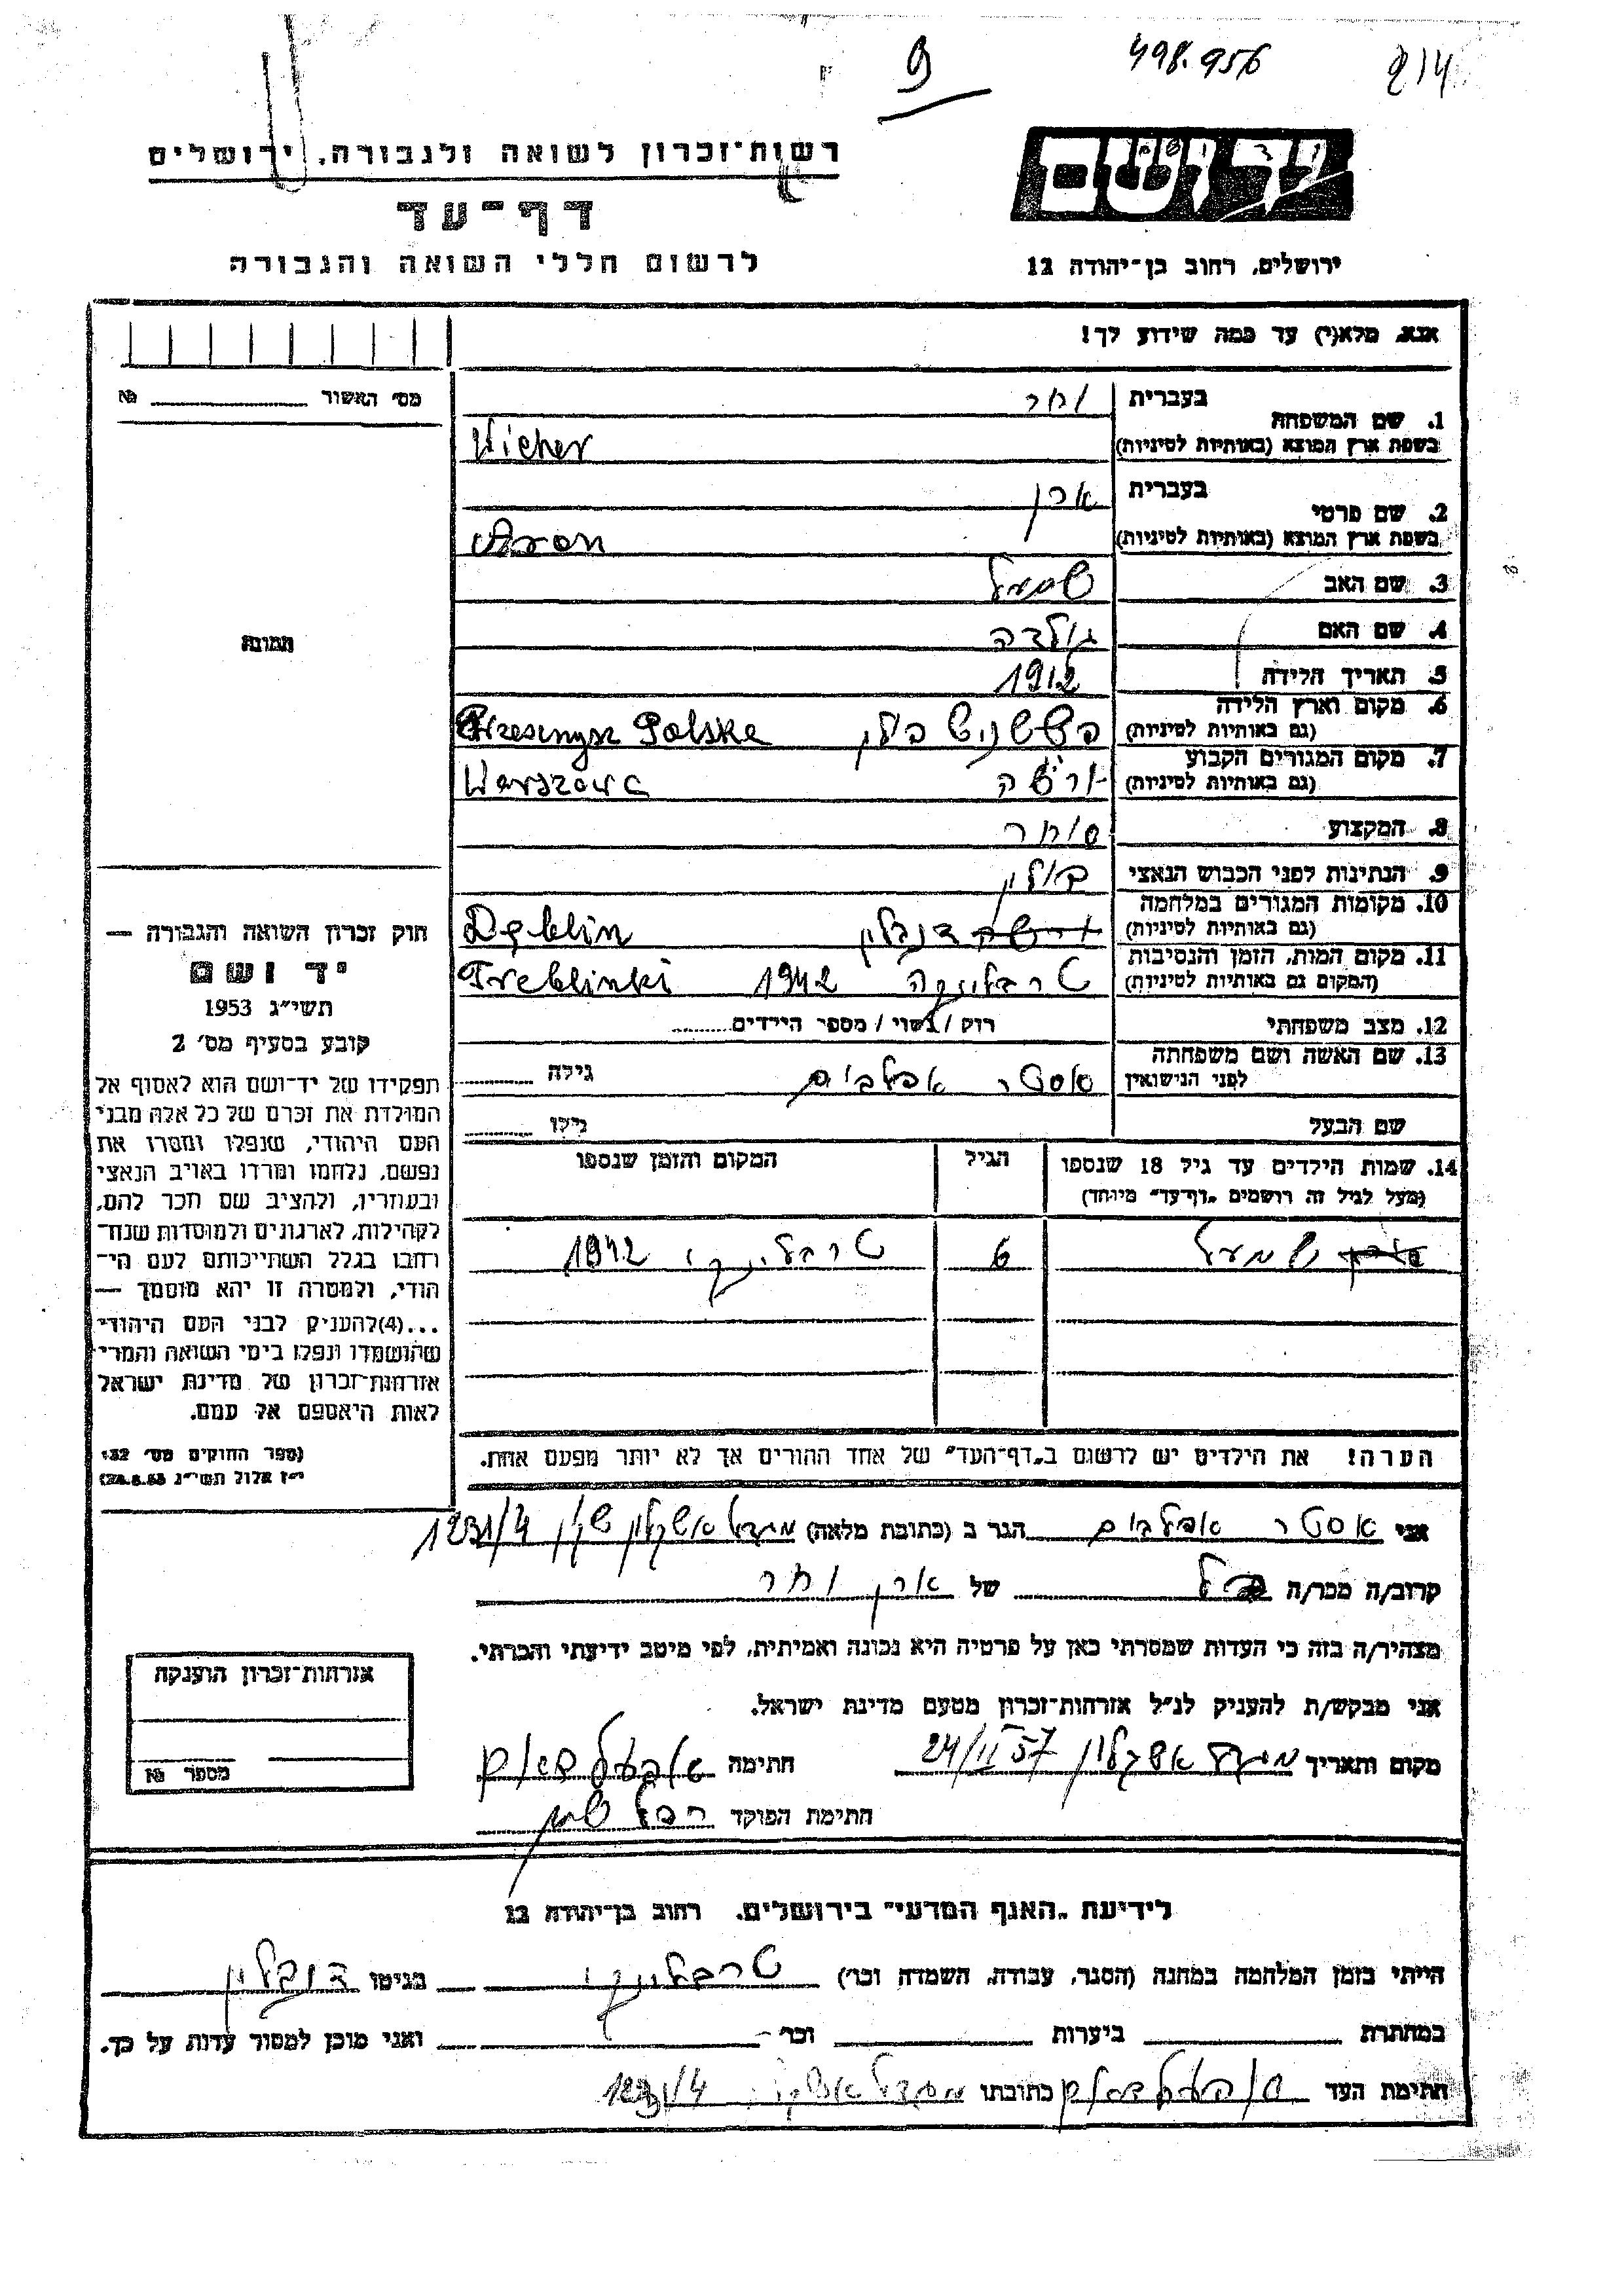 9 498.956 214
רשות־זכרון לשואה ולגבורה, ירושלים
יד ושם
דף־עד
לרשום חללי השואה והגבורה
ירושלים, רחוב בן־יהודה 12
אנא, מלא(י) עד כמה שידוע לך!
מס׳ האשור № 
1. שם המשפחה בעברית וחר
בשפת ארץ המוצא (באותיות לטיניות) Wicher
2. שם פרטי בעברית ארן
בשפת ארץ המוצא (באותיות לטיניות) Aron
3. שם האב שמואל
4. שם האם גולדה
5. תאריך הלידה 1912
6. מקום וארץ הלידה
(גם באותיות לטיניות) פולין Polska
7. מקום המגורים הקבוע
(גם באותיות לטיניות) ורשה Warszawa
8. המקצוע סוחר
9. הנתינות לפני הכבוש הנאצי פולין
10. מקומות המגורים במלחמה
(גם באותיות לטיניות) ורשה דנבלין Dęblin
11. מקום המות, הזמן והנסיבות
(המקום גם באותיות לטיניות) טרבלינקה 1942 Treblinki
12. מצב משפחתי רוק / נשוי / מספר הילדים
13. שם האשה ושם משפחתה
לפני הנישואין אסטר אפלבוים גילה
שם הבעל גילו
14. שמות הילדים עד גיל 18 שנספו הגיל המקום והזמן שנספו
(מעל לגיל זה רושמים „דף־עד״ מיוחד)
שמואל 6 טרבלינקי 1942
הערה! את הילדים יש לרשום ב„דף־העד״ של אחד ההורים אך לא יותר מפעם אחת.
תמונה
חוק זכרון השואה והגבורה —
יד ושם
תשי״ג 1953
קובע בסעיף מס׳ 2
תפקידו של יד־ושם הוא לאסוף אל
המולדת את זכרם של כל אלה מבני
העם היהודי, שנפלו ומסרו את
נפשם, נלחמו ומרדו באויב הנאצי
ובעוזריו, ולהציב שם וזכר להם,
לקהילות, לארגונים ולמוסדות שנח־
רבו בגלל השתייכותם לעם הי־
הודי, ולמטרה זו יהא מוסמך —
...(4)להעניק לבני העם היהודי
שהושמדו ונפלו בימי השואה והמרי
אזרחות־זכרון של מדינת ישראל
לאות היאספם אל עמם.
(ספר החוקים מס׳ 132,
י״ז אלול תשי״ג 28.8.53)
אני אסטר אפלבוים הגר ב (כתובת מלאה) מגדל אשקלון 1231/4
קרוב/ה מכר/ה של ארן וחר
מצהיר/ה בזה כי העדות שמסרתי כאן על פרטיה היא נכונה ואמיתית, לפי מיטב ידיעתי והכרתי.
אני מבקש/ת להעניק לנ״ל אזרחות־זכרון מטעם מדינת ישראל.
מקום ותאריך מגדל אשקלון 24/II 57 חתימה
חתימת הפוקד
אזרחות־זכרון הוענקה
מספר №
לידיעת „האגף המדעי״ בירושלים, רחוב בן־יהודה 12
הייתי בזמן המלחמה במחנה (הסגר, עבודה, השמדה וכו׳) טרבלינקי בגיטו דנבלין
במחתרת ביערות וכו׳ ואני מוכן למסור עדות על כך.
חתימת העד כתובתו מגדל אשקלון 1231/4